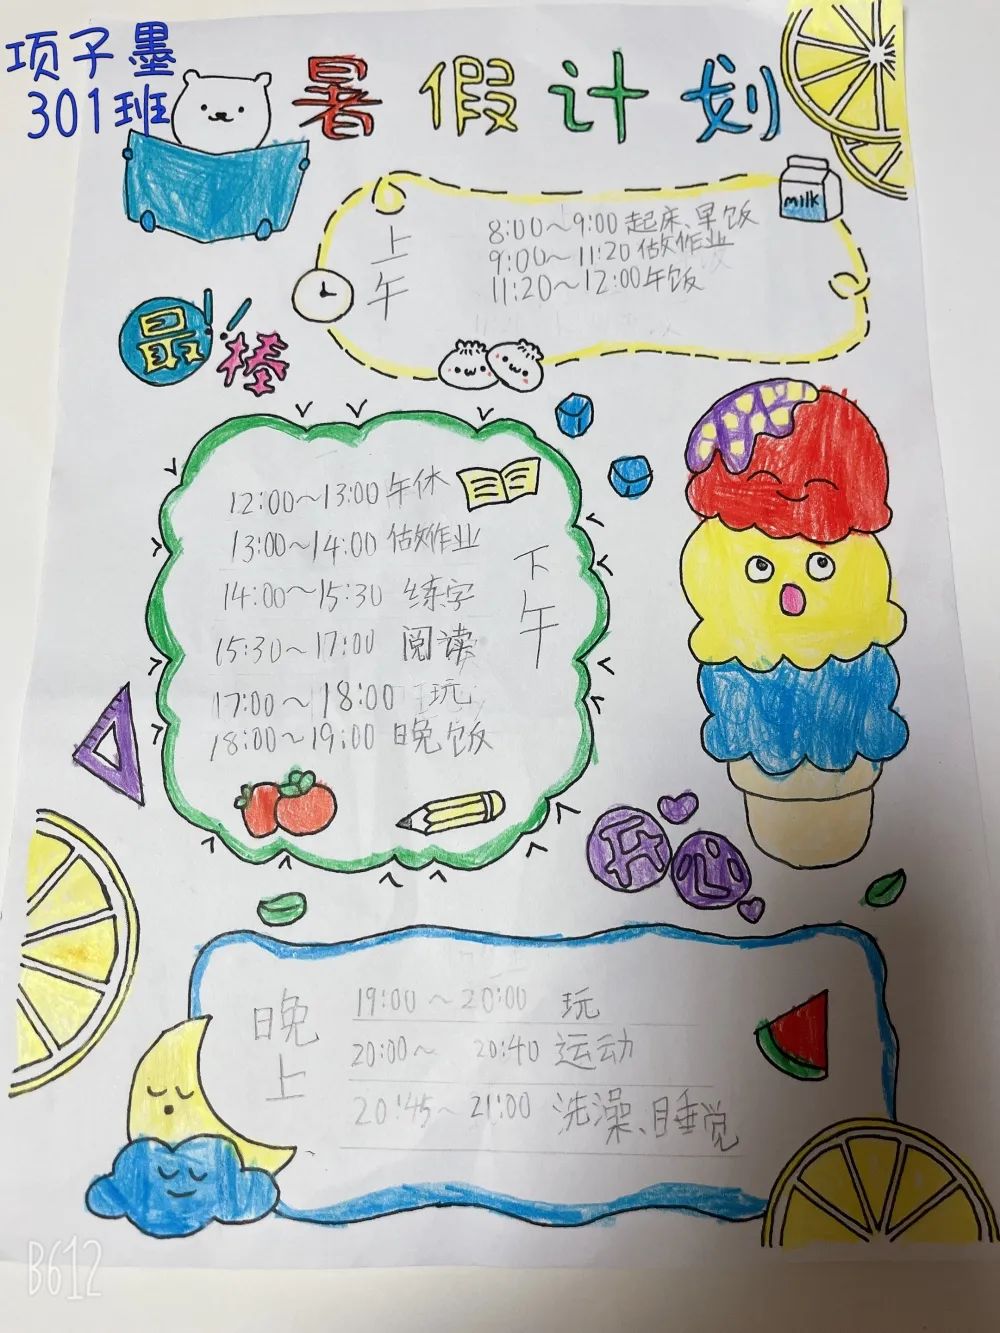 项子墨
301班
暑假计划
milk
上午
8:00~9:00 起床、早饭
9:00~11:20 做作业
11:20~12:00 午饭
最棒
12:00~13:00 午休
13:00~14:00 做作业
14:00~15:30 练字
15:30~17:00 阅读
17:00~18:00 玩
18:00~19:00 晚饭
下午
开心
晚上
19:00~20:00 玩
20:00~20:40 运动
20:45~21:00 洗澡、睡觉
B612